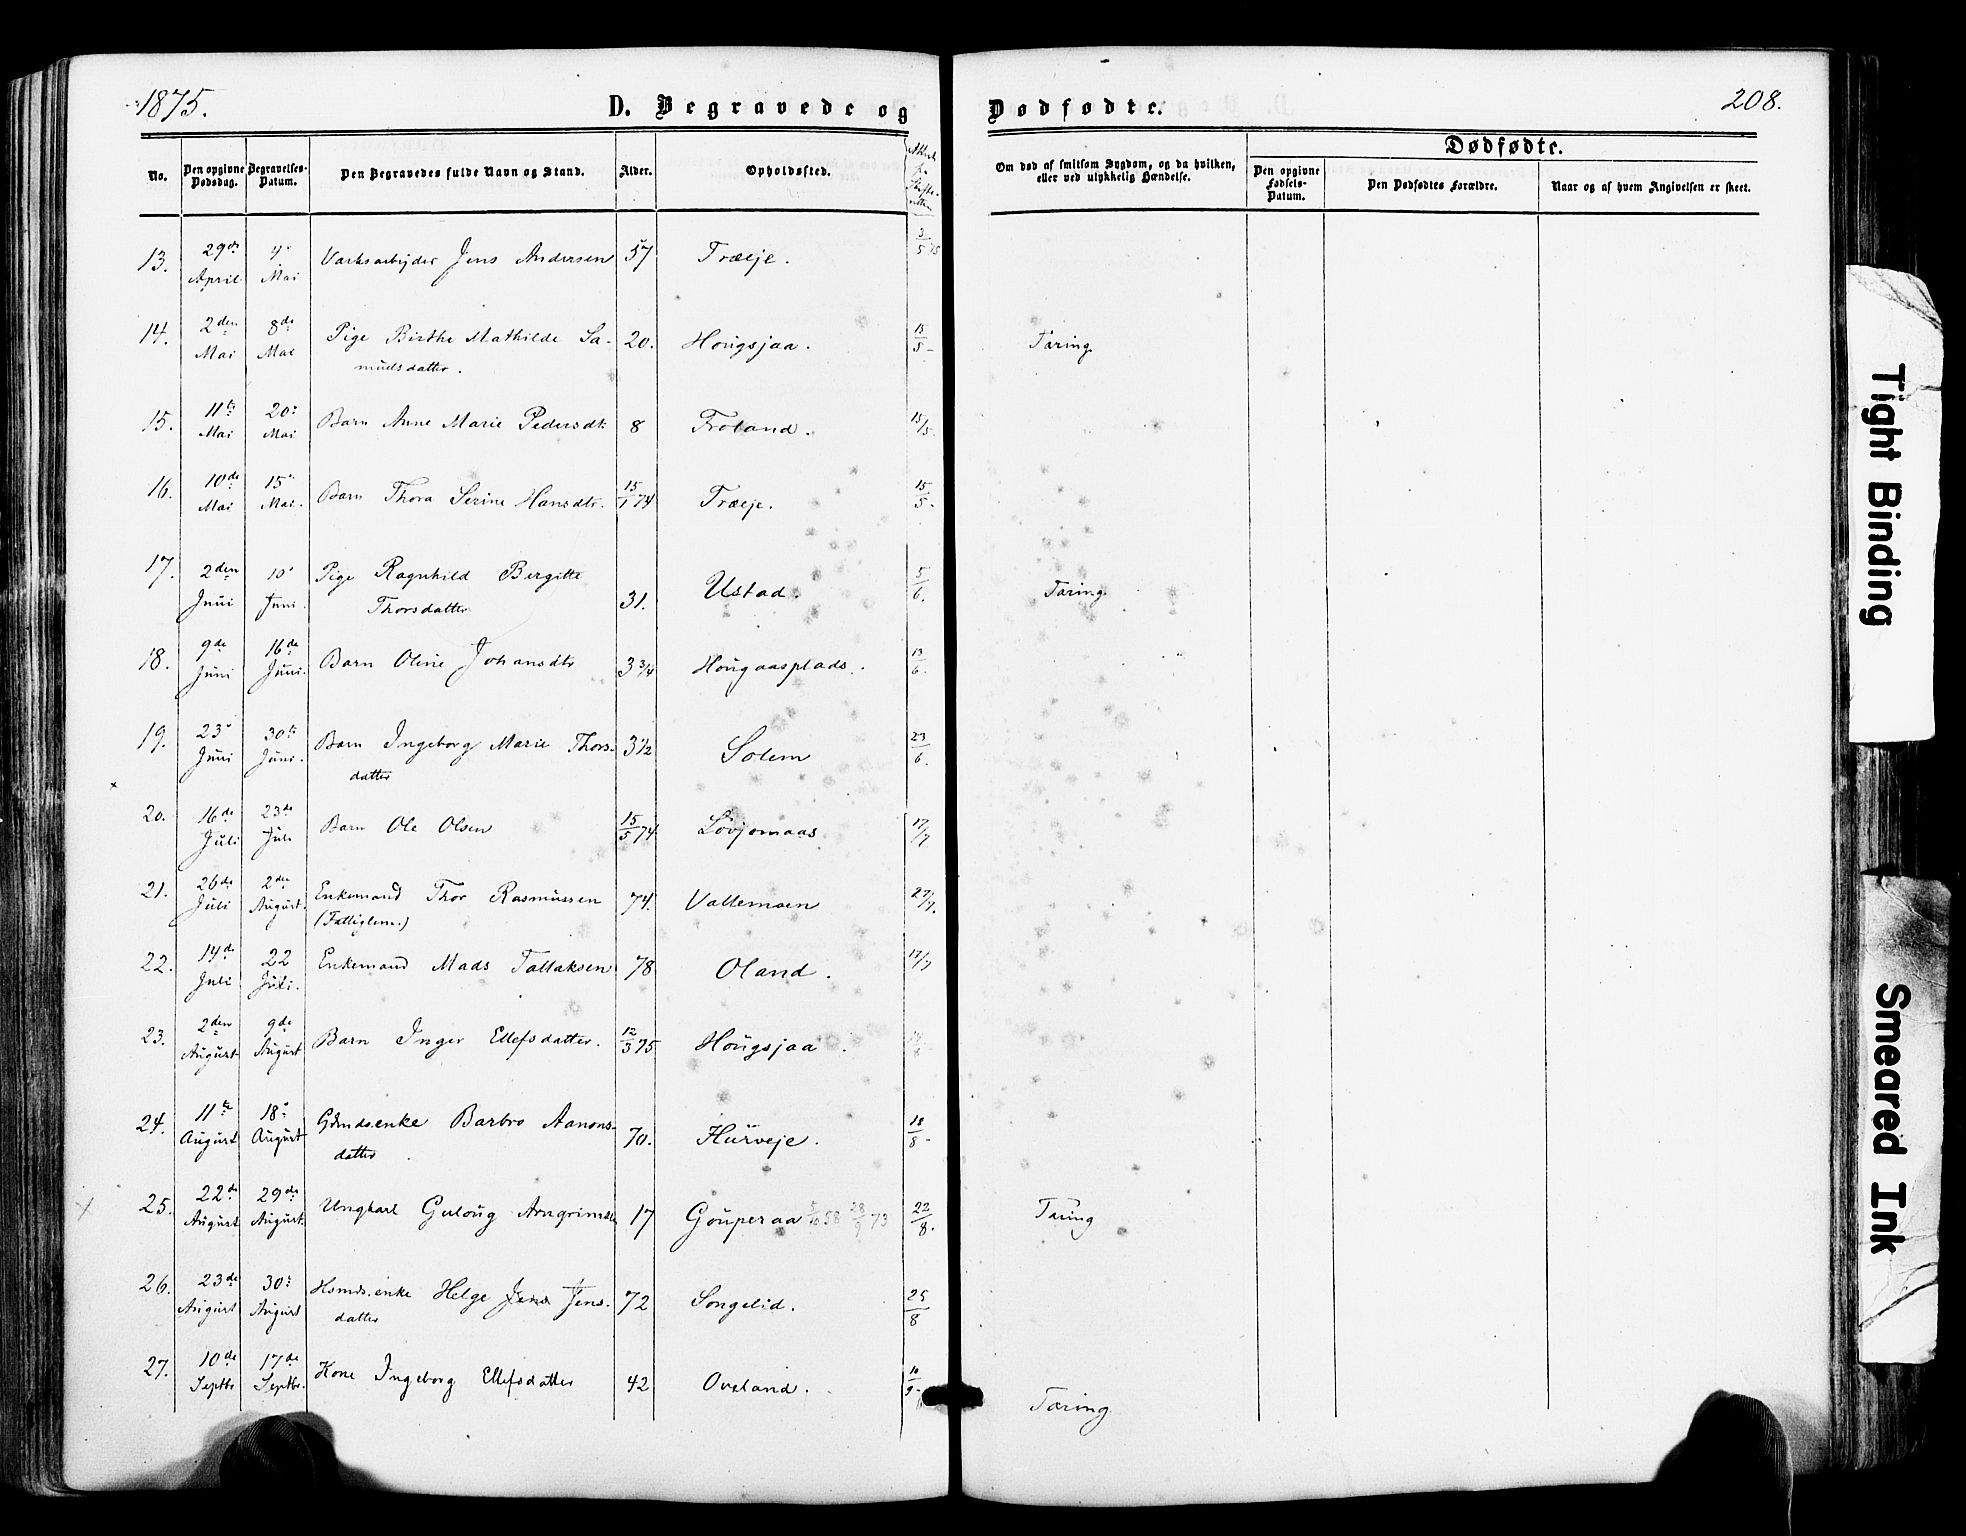 1875.
D. Begravede og Dødfødte.
208.
No.
Den opgivne Dødsdag.
Begravelses-Datum.
Den Begravedes fulde Navn og Stand.
Alder.
Opholdssted.
Om død af smitsom Sygdom, og da hvilken, eller ved ulykkelig Hændelse.
Dødfødte.
Den opgivne Fødsels-Datum.
Den Dødfødtes Forældre.
Naar og af hvem Angivelsen er skeet.
13. 29de April 4de Mai Jens Andersen 57 Træeje. 3/5 75
14. 2den Mai 8de Mai Pige Birthe Mathilde Sa- 20. Hougsjaa. 15/5 - Tæring
muelsdatter.
15. 11te Mai 20de Mai Barn Anne Marie Pedersdt: 8 Froland. 15/5-
16. 10de Mai 15de Mai. Barn Thora Serine Hansdtr. 15/1 74 Træeje. 15/5-
17. 2den Juni 10de Juni. Pige Ragnhild Bergitte
Thorsdatter 31. Ustad. 5/6. Tæring
18. 9de Juni 16de Juni. Barn Oline Johansdtr 3 3/4 Hougaasplads. 13/6.
19. 23de Juni 30te Juni. Barn Ingeborg Marie Thors- 3 1/2 Solem 23/6.
datter
20. 16de Juli 23de Juli Barn Ole Olsen 15/5 74 Løvjomaas 17/7
21. 26de Juli 2den August. Enkemand Thor Rasmussen 74. Vallemoen 27/7.
(Fattiglem.)
22. 14de Juli 22 Juli. Enkemand Mads Tallaksen 78 Oland. 17/7
23. 2den August 9de August Barn Inger Ellefsdatter. 12/3 75 Hougsjaa.
24. 11te August 18de August Gdmdsenke Barbro Aanons- 70. Hurveje. 18/8-
datter
25. 22de August 29de August. Ungkarl Guloug Arngrimsen 17 Gouperaa 22/8. Tæring
26. 23de August 30te August Hsmds.enke Helge Jens Jens- 72 Songelid. 25/8
datter
27. 10de Septbr 17de Septbr. Kone Ingeborg Ellefsdatter 42 Oveland. 10/9- Tæring
Tight Binding
Smeared Ink